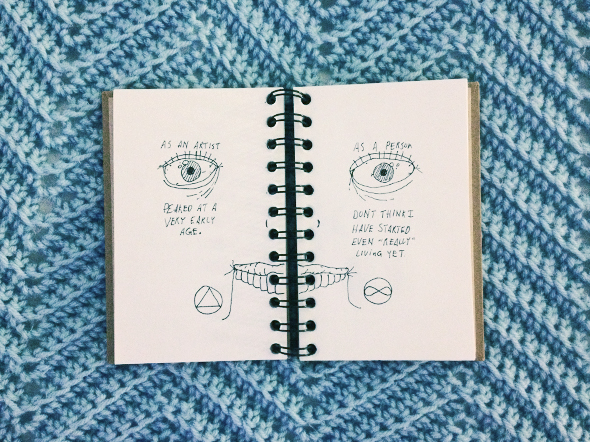 AS AN ARTIST
PEAKED AT A
VERY EARLY
AGE.
AS A PERSON
DON'T THINK I
HAVE STARTED
EVEN "REALLY"
LIVING YET.